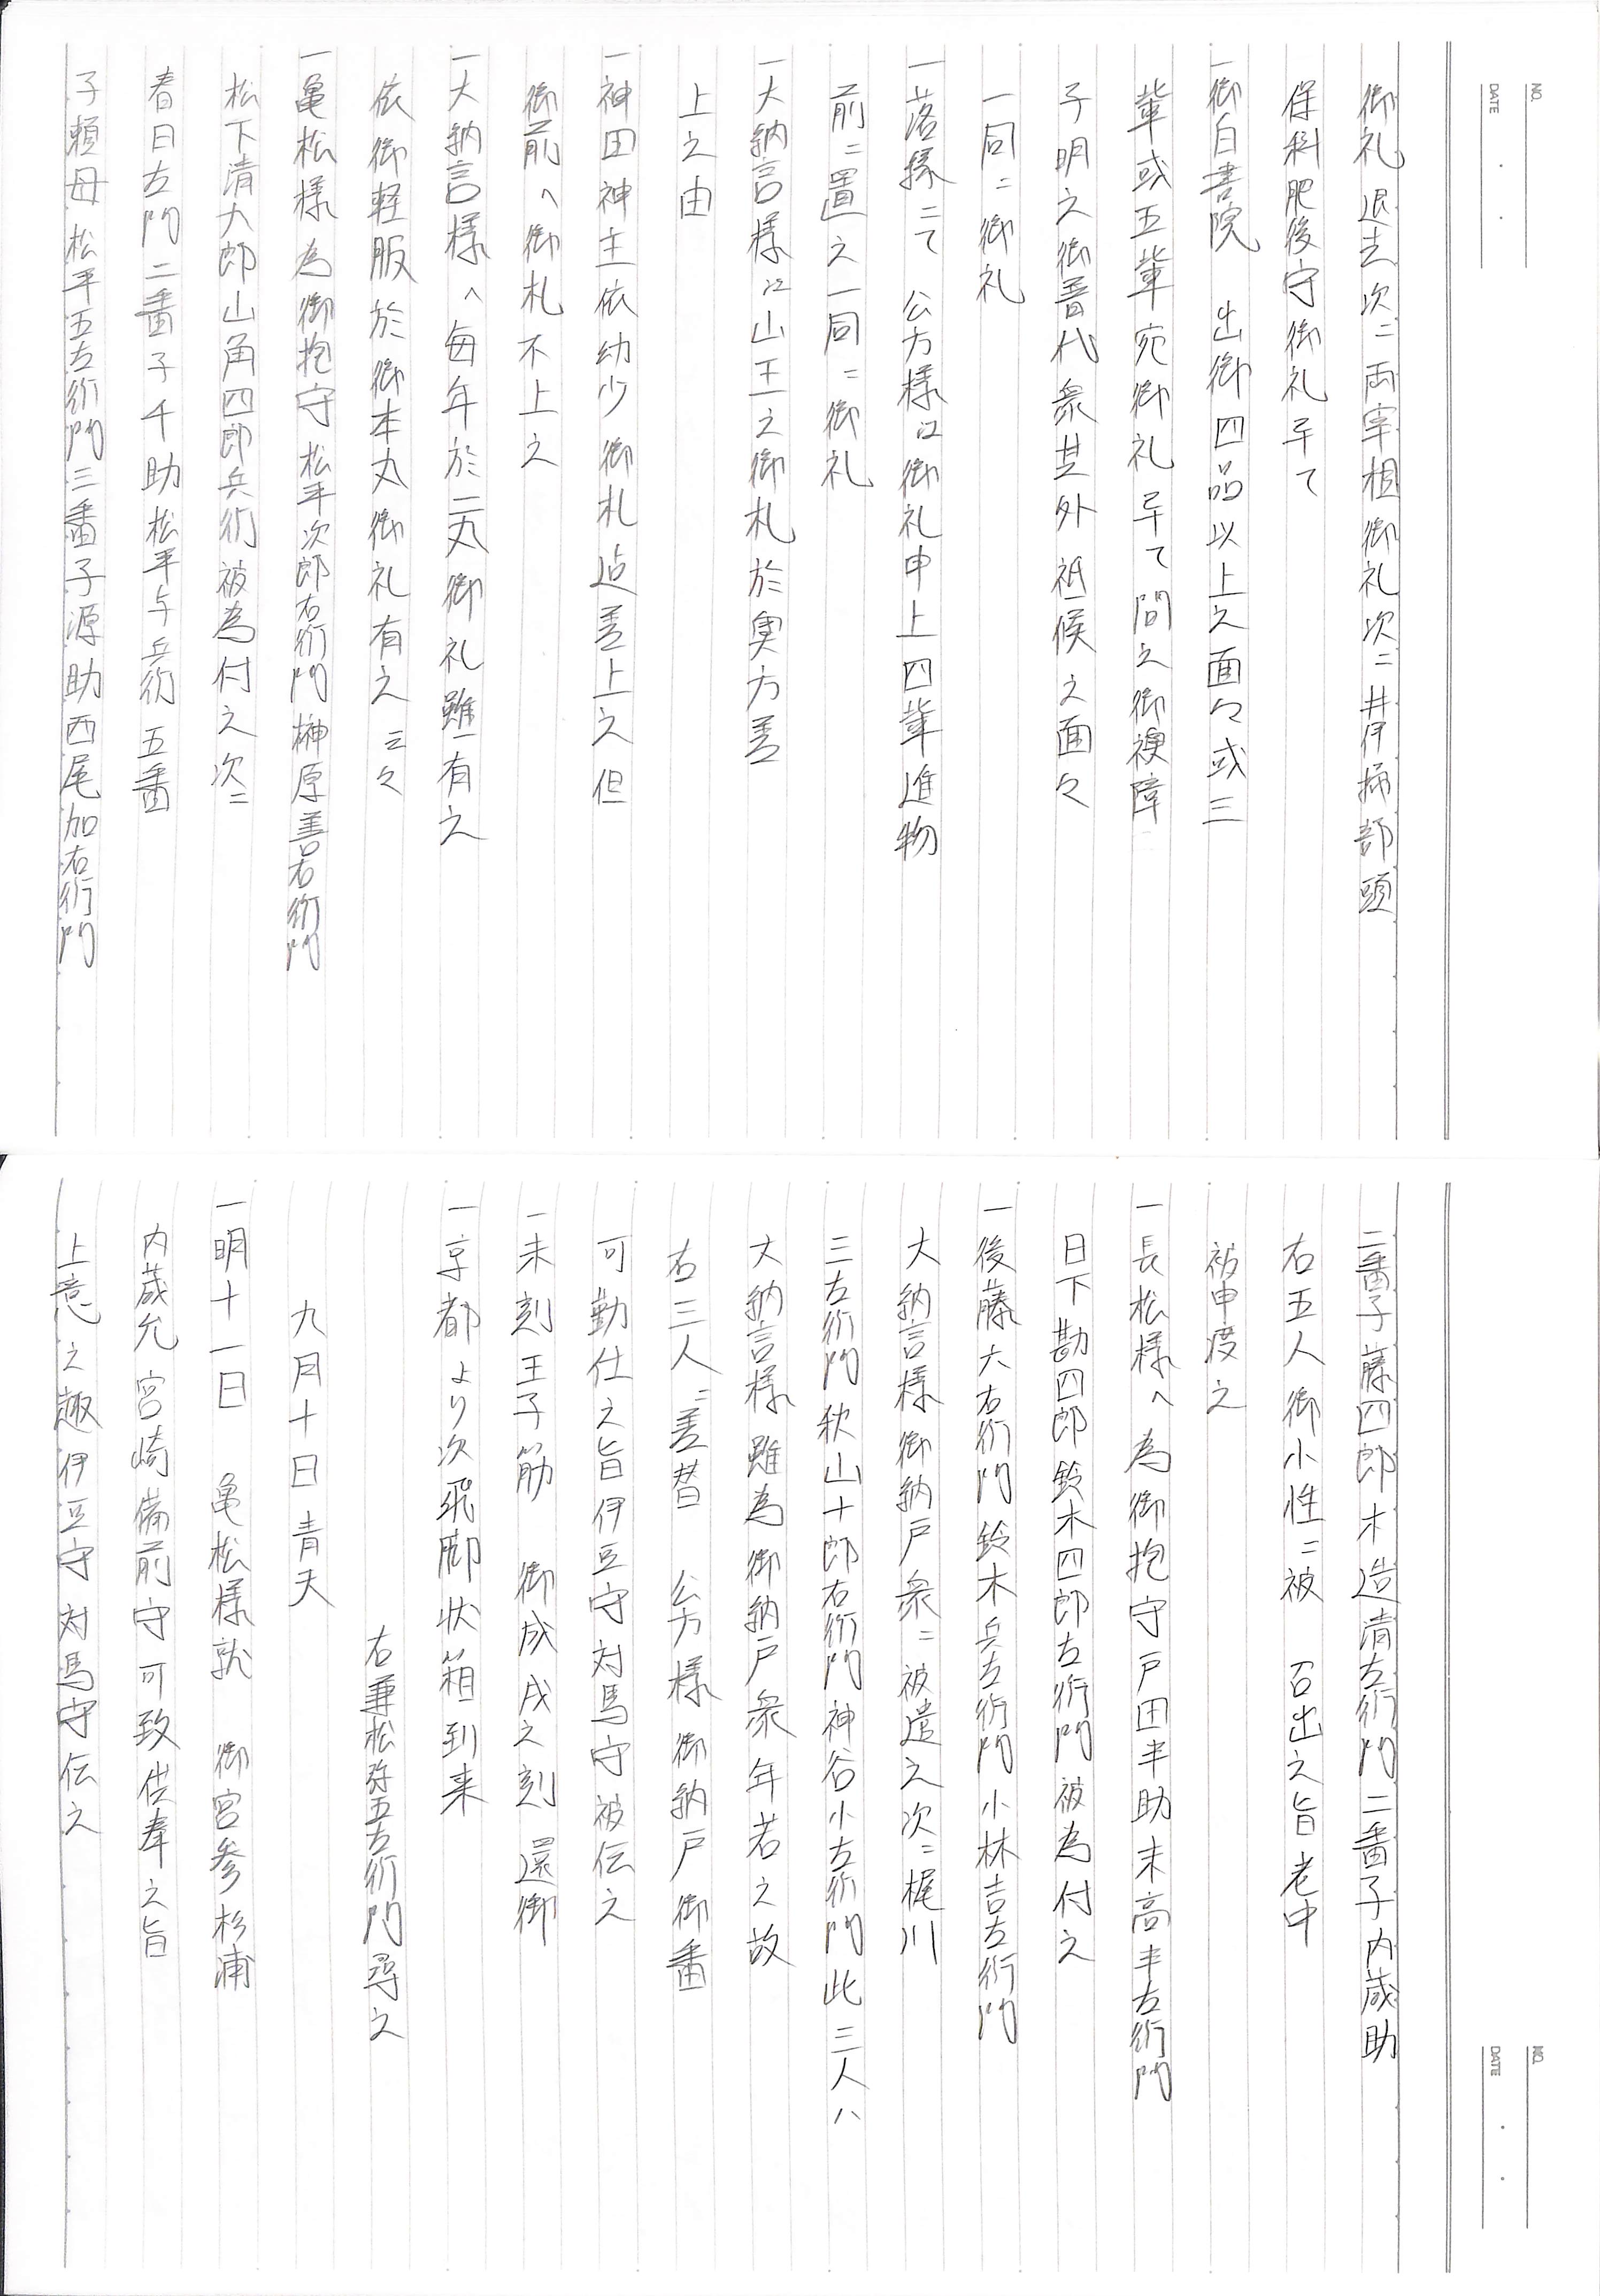 NO.
DATE
御礼退去次ニ両宰相御礼次ニ井伊掃部頭
保科肥後守御礼畢て
一御白書院　出御四品以上之面々或三
輩或五輩宛御礼畢て間之御襖障
子明之御普代衆其外祗候之面々
一同ニ御礼
一落縁ニて　公方様江御礼申上四輩進物
前ニ置之一同ニ御礼
一大納言様江山王之御札於奥方差
上之由
一神田神主依幼少御札迠差上之但
御前へ御札不上之
一大納言様へ毎年於二丸御礼雖有之
依御軽服於御本丸御礼有之云々
一亀松様為御抱守松平次郎右衛門榊原善右衛門
松下清九郎山角四郎兵衛被為付之次ニ
春日左門二番子千助松平与兵衛五番
子頼母松平五左衛門三番子源助西尾加右衛門
NO.
DATE
二番子藤四郎木造清左衛門二番子内蔵助
右五人御小性ニ被　召出之旨老中
被申渡之
一長松様へ為御抱守戸田半助末高半左衛門
日下勘四郎鈴木四郎左衛門被為付之
一後藤六右衛門鈴木兵左衛門小林吉左衛門
大納言様御納戸衆ニ被遣之次ニ梶川
三左衛門秋山十郎右衛門神谷小左衛門此三人ハ
大納言様雖為御納戸衆年若之故
右三人ニ差替　公方様御納戸御番
可勤仕之旨伊豆守対馬守被伝之
一未刻王子筋　御成戌之刻　還御
一京都より次飛脚状箱到来
右兼松弥五左衛門尋之
九月十日青天
一明十一日　亀松様就　御宮参杉浦
内蔵允宮崎備前守可致供奉之旨
上意之趣伊豆守対馬守伝之